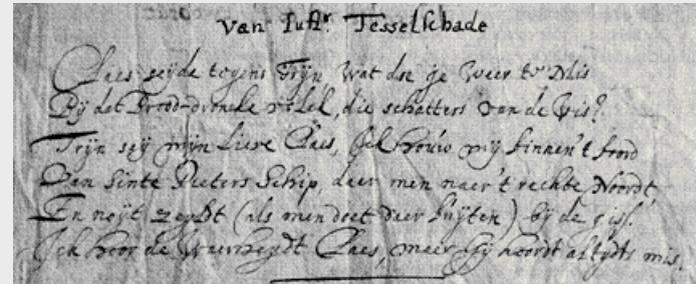 van Juffr. Tesselschade
Claes seijde tegens Trijn wat doe je weer te Mis
Bij dat Brood-droncke volck, die schatters van de vis?
Trijn seij mijn lieve Claes, Ick houw mij binnen 't boord
Van Sinte Pieters Schip, daer men naer 't rechte Noordt,
En neijt zeijldt (als men doet daer buijten) bij de giss.
Ick hoor de Waerheijdt Claes, maer Ghij hoordt altijdts mis.